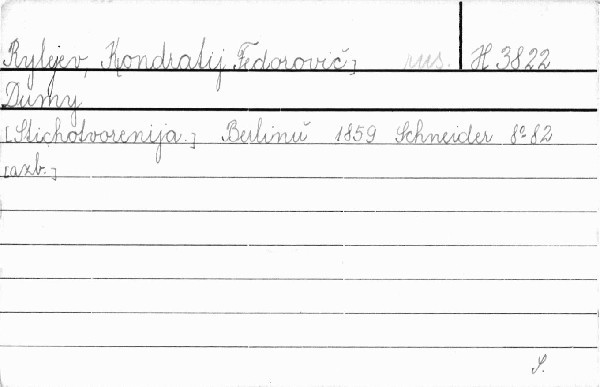 Rylejev, Kondratij Fedorovič] rus. H 3822
Dumy
[Stichotvorenija.] Berlinŭ 1859 Schneider 8° 82
[axb.]
S.